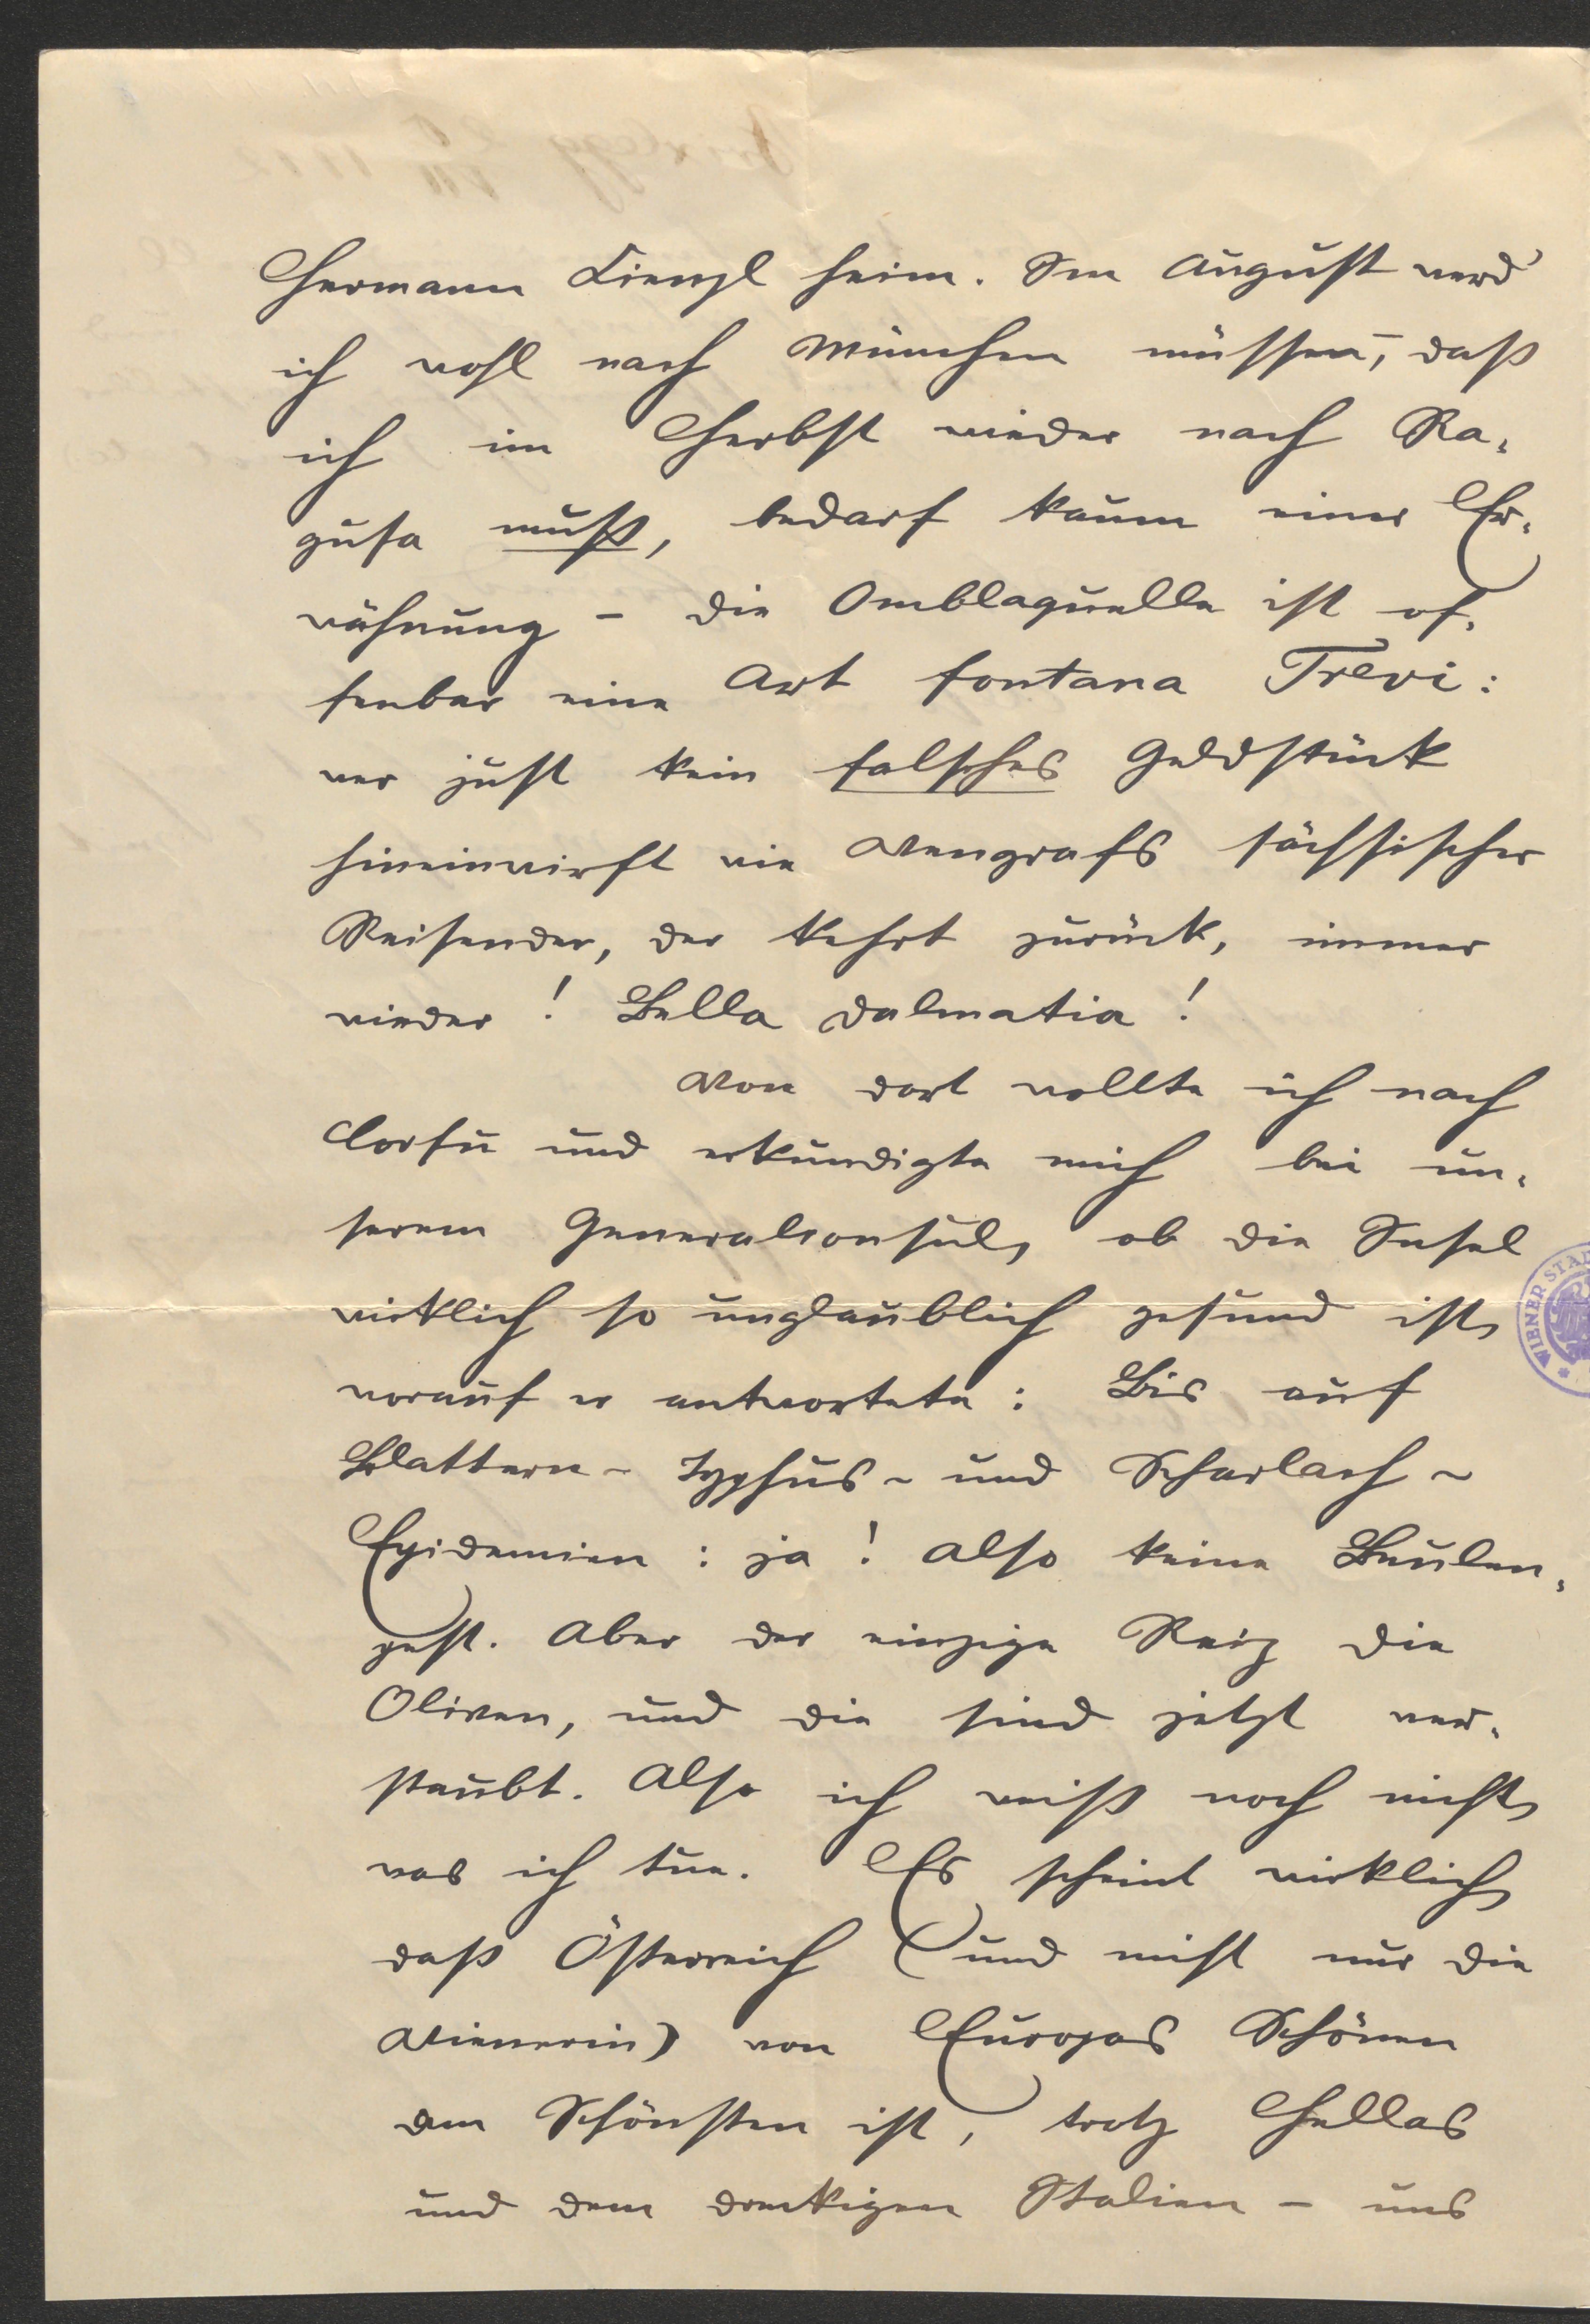 Hermann Kienzl heim. Im August werd'
ich wohl nach München müssen, daß
ich im Herbst wieder nach Ra-
gusa muß, bedarf kaum einer Er-
wähnung – die Omblaquelle ist of-
fenbar eine Art fontana Trevi:
wer just kein falsches Geldstück
hineinwirft wie Wengrafs sächsischer
Reisender, der kehrt zurück, immer
wieder! Bella Dalmatia!
Von dort wollte ich nach
Corfu und erkundigte mich bei un-
serem Generalconsul, ob die Insel
wirklich so unglaublich gesund ist,
worauf er antwortete: Bis auf
Blattern- Typhus- und Scharlach-
Epidemien: ja! Also keine Beulen-
pest. Aber der einzige Reiz die
Oliven, und die sind jetzt ver-
staubt. Also ich weiß noch nicht,
was ich tue. Es scheint wirklich,
daß Österreich (und nicht nur die
Wienerin) von Europas Schönen
am Schönsten ist, trotz Hellas
und dem dreckigen Italien – uns
WIENER STAD